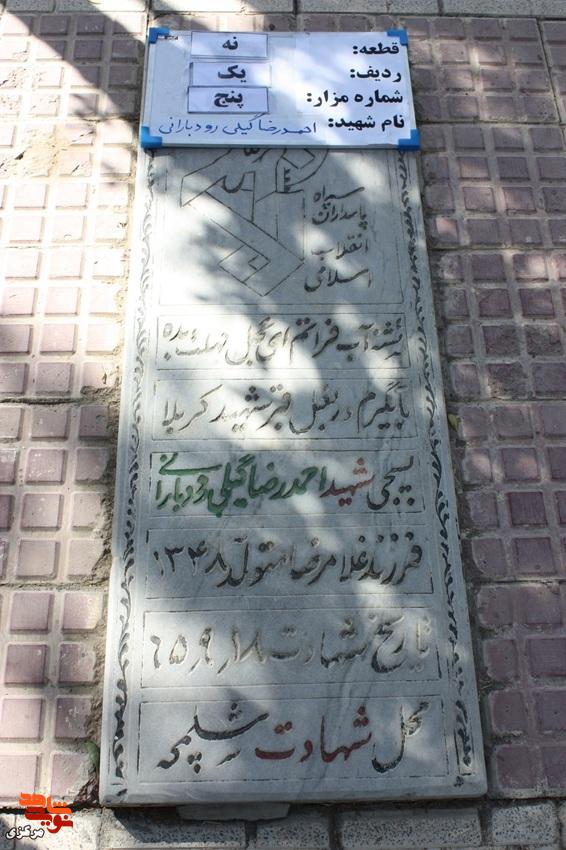 قطعه: نه
ردیف: یک
شماره مزار: پنج
نام شهید: احمدرضا گیلی رودبارانی
سپاه
پاسداران
انقلاب
اسلامی
تشنه آب فراتم ای عجل مهلت بده
تا بگیرم در بغل قبر شهید کربلا
بسیجی شهید احمدرضا گیلی رودبارانی
فرزند غلامرضا متولد ۱۳۴۸
تاریخ شهادت ۱۸ ر ۹ ر ۶۵
محل شهادت شلمچه
نوید شاهد
مرکزی